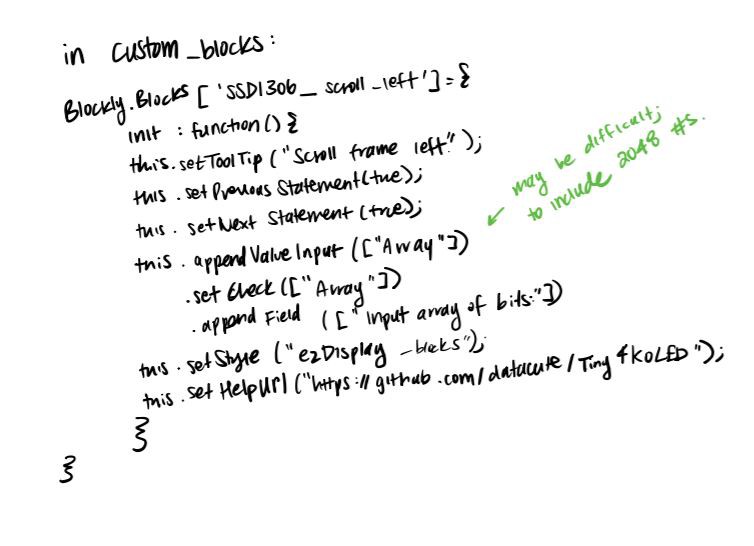 in custom_blocks:
Blockly.Blocks ['SSD1306_ scroll_left'] = {
init : function() {
this.setToolTip ("Scroll frame left");
this .setPrevious Statement(true);
this . setNext Statement (true);
this . append Value Input (["Array"])
.set Check (["Array"])
. append Field (["Input array of bits:"])
this . setStyle ("ezDisplay _blocks");
this . set HelpUrl ("https://github.com/datacute/Tiny4kOLED");
}
}
may be difficult;
to include 2048 #s.